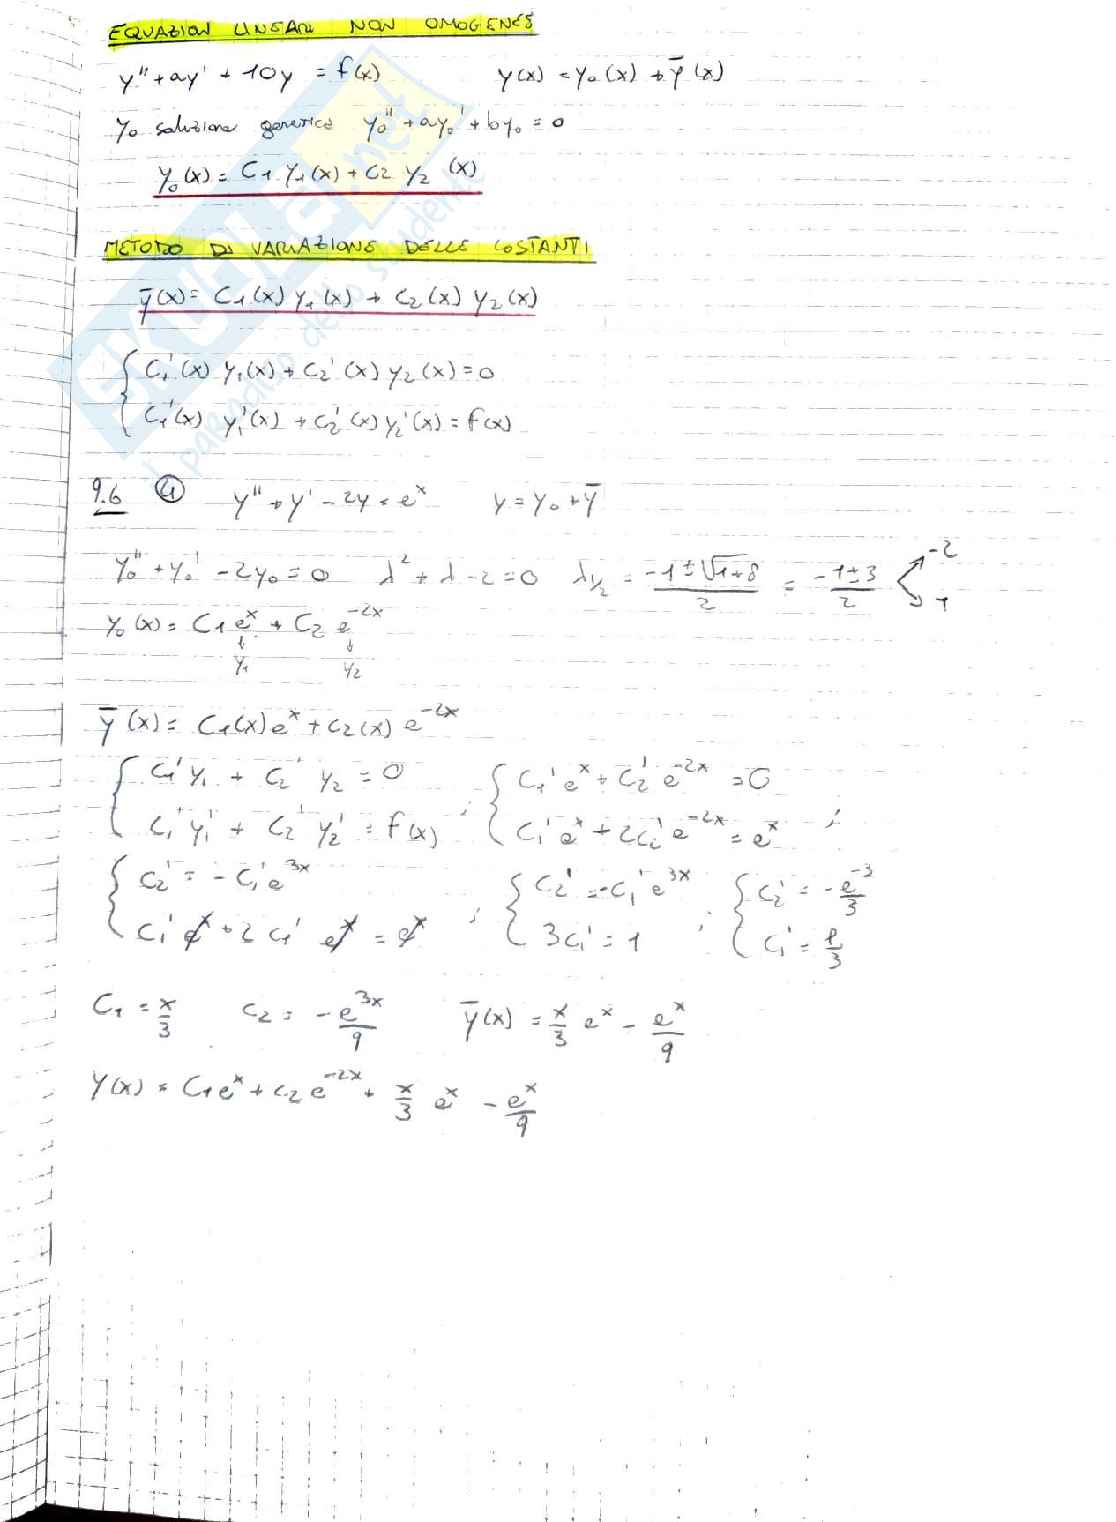 EQUAZIONI LINEARI NON OMOGENEE
y'' + ay' + 10y = f(x) y(x) = y₀(x) + ȳ(x)
y₀ soluzione generica y₀'' + ay₀' + by₀ = 0
y₀(x) = C₁ y₁(x) + C₂ y₂(x)
METODO DI VARIAZIONE DELLE COSTANTI
ȳ(x) = C₁(x) y₁(x) + C₂(x) y₂(x)
{ C₁'(x) y₁(x) + C₂'(x) y₂(x) = 0
C₁'(x) y₁'(x) + C₂'(x) y₂'(x) = f(x)
9.6 ④ y'' + y' - 2y = eˣ y = y₀ + ȳ
y₀'' + y₀' - 2y₀ = 0 λ² + λ - 2 = 0 λ₁/₂ = (-1 ± √(1+8))/2 = (-1 ± 3)/2 -2
1
y₀(x) = C₁ eˣ + C₂ e⁻²ˣ
y₁ y₂
ȳ(x) = C₁(x) eˣ + C₂(x) e⁻²ˣ
{ C₁' y₁ + C₂' y₂ = 0 { C₁' eˣ + C₂' e⁻²ˣ = 0
C₁' y₁' + C₂' y₂' = f(x) ; C₁' eˣ + 2C₂' e⁻²ˣ = eˣ ;
{ C₂' = - C₁' e³ˣ { C₂' = -C₁' e³ˣ { C₂' = - e⁻³/3
C₁' eˣ + 2 C₁' eˣ = eˣ ; 3C₁' = 1 ; C₁' = 1/3
C₁ = x/3 C₂ = - e³ˣ/9 ȳ(x) = x/3 eˣ - eˣ/9
y(x) = C₁eˣ + C₂ e⁻²ˣ + x/3 eˣ - eˣ/9
SKUOLA.net
il paradiso dello studente